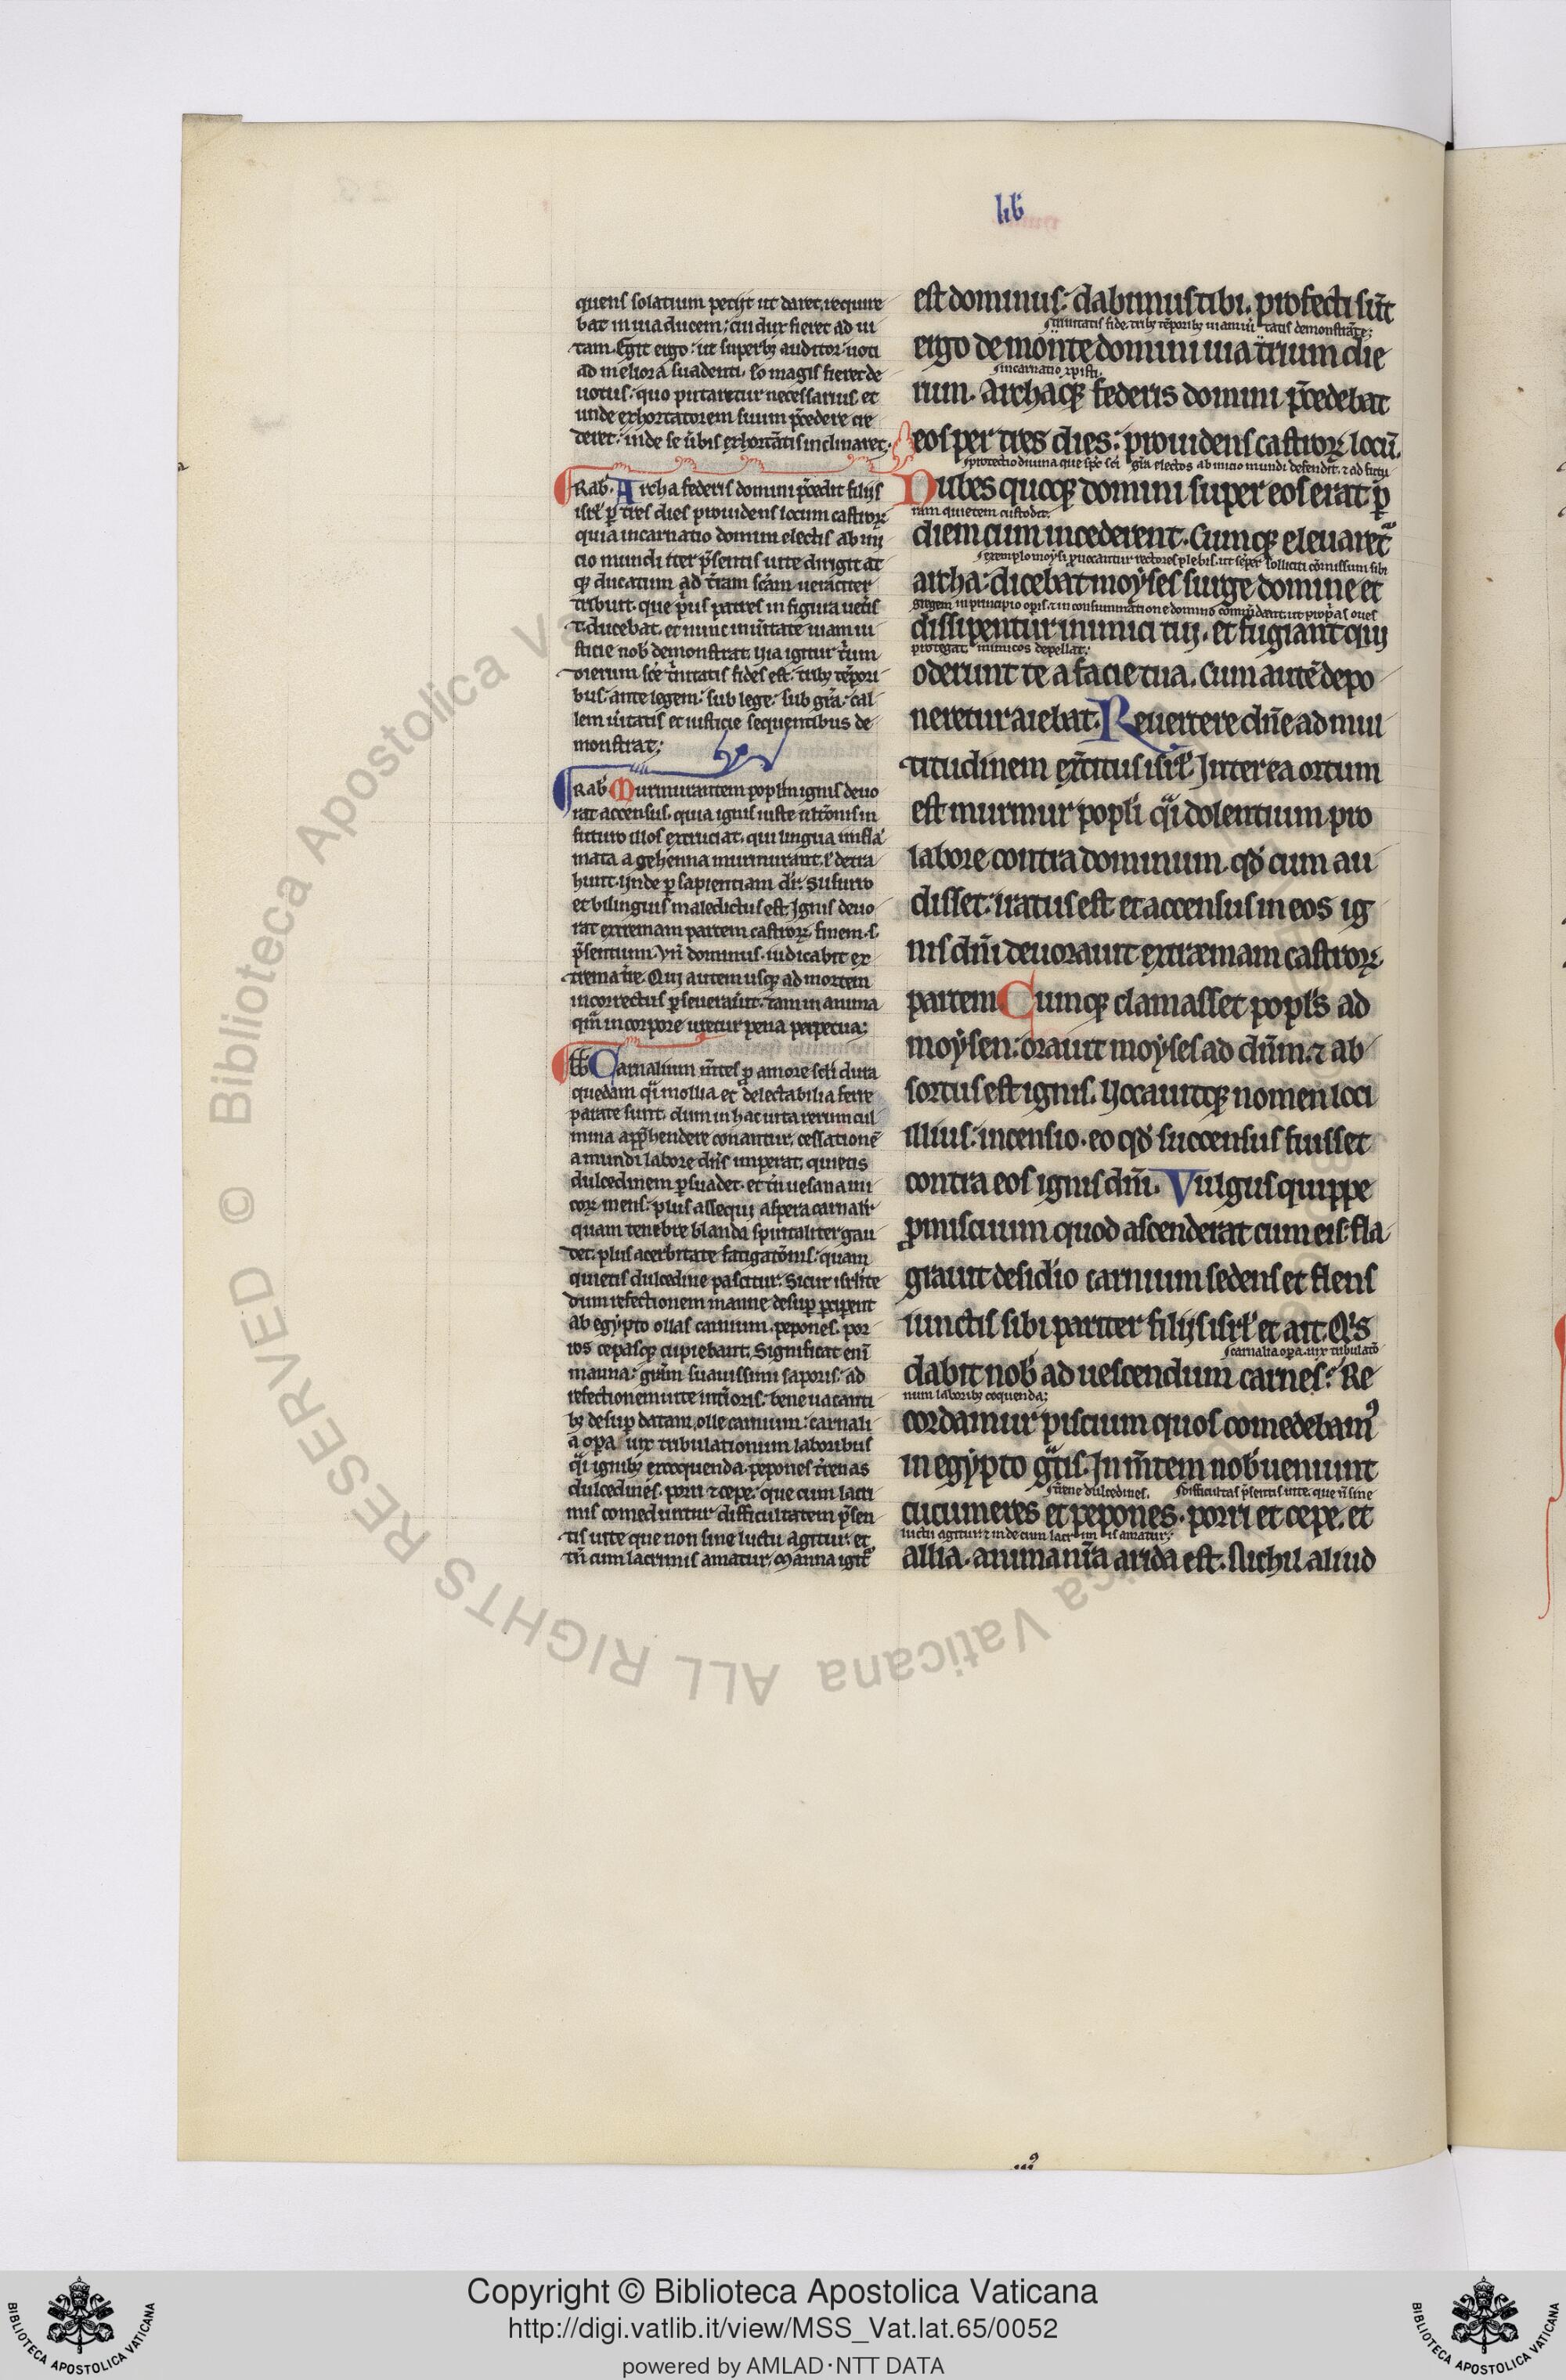 lib̃
quens solatium petijt ut daret, require
bat in uia ducem; cui dux fieret ad ui
tam. Egit ergo: ut superb̾ auditor uoti
ad meliora suadenti, eo magis fieret de
uotus: quo putaretur necessarius, et
unde exhortatorem suum p̃cedere cre
deret: inde se ũbis exhortãtis inclinaret.
Rab̃. Archa federis domini p̃cedit filijs
isrl̃ p̱ tres dies prouidens locum castroꝝ
quia incarnatio domini electis ab ini
cio mundi iter p̃sentis uite dirigit at
qꝫ ducatum ad t̃ram sc̃am ueraciter
tribuit. que p̾us patres in figura uet̾is
t. ducebat. et nunc in ũitate uiam iu
sticie nob̾ demonstrat. Uia igitur t̾um
dierum sc̃e t̾nitatis fides est. trib̾ tẽpori
bus. ante legem: sub lege: sub gr̃a: cal
lem ũitatis et iusticie sequentibus de
monstrat;
Rab̃ Murmurantem popl̃m ignis deuo
rat accensus. quia ignis iuste ultõnis in
futuro illos excruciat. qui lingua infla
mata a gehenna murmurant. l̾ detra
hunt. Unde p̱ sapientiam dr̃. Susurro
et bilinguis maledictus est. Ignis deuo
rat extremam partem castroꝝ. finem .s.
p̃sentium. Un̄ dominus iudicabit ex
trema t̾re. Qui autem usqꝫ ad mortem
incorrectus p̱seuerau̾it. tam in anima
qm̃ in corpore uretur pena perpetua;
Carnalium m̃tes p̱ amore sc̃li dura
quedam q̾i mollia et delectabilia ferre
parate sunt. dum in hac uita rerum cul
mina app̃hendere conantur. cessationẽ
a mundi labore dñs imperat, quietis
dulcedinem p̱suadet. et tñ uesana ini
coꝝ mens: plus assequi aspera carnalit̾
quam tenere blanda spiritaliter gau
det. plus acerbitate fatigatõnis: quam
quietis dulcedine pascitur. Sicut isrl̃ite
dum refectionem manne desup̱ p̱ciperent
ab egypto ollas carnium. pepones. por
ros cepasqꝫ cupiebant. Significat enĩ
manna: gr̃am suauissimi saporis: ad
refectionem uite int̾ioris: bene uacanti
b̾ desup̱ datam. olle carnium: carnali
a op̱a uix tribulationum laboribus
q̾i ignib̾ excoquenda. pepones t̾renas
dulcedines. porri ⁊ cepe: que cum lacri
mis comeduntur difficultatem p̃sen
tis uite que non sine luctu agitur. et
tñ cum lacrimis amatur. Manna igit̾
est dominus: dabimus tibi. profecti sũt
s. t̾nitatis fide. trib̾ tẽporib̾ uiam ũitatis demonstrãte;
ergo de monte domini uia trium die
s. incarnatio xp̃isti.
rum. Archaqꝫ federis domini p̃cedebat
eos per tres dies: prouidens castroꝝ locũ.
s. protectio diuina que sp̃c sc̃i gr̃a electos ab inicio mundi defendit. ⁊ ad futu
Nubes quoqꝫ domini super eos erat p̱
ram quietem custodit.
diem cum incederent. Cumqꝫ eleuaret̾
s. exemplo moysi p̱uocantur rectores plebis. ut sẽper solliciti cõmissum sibi
archa: dicebat moyses surge domine et
gregem in principio op̱is. ⁊ in consummatione domino cõmẽdant ut prop̾as oues
dissipentur inimici tui. et fugiant qui
protegat. inimicos depellat;
oderunt te a facie tua. Cum autẽ depo
neretur aiebat. Reuertere dñe ad mul
titudinem ex̾citus isrl̃ Interea ortum
est murmur popl̃i q̾i dolentium pro
labore contra dominum. qđ cum au
disset. iratus est. et accensus in eos ig
nis dñi deuorauit extremam castroꝝ
partem Cumqꝫ clamasset popl̃s ad
moysen: orauit moyses ad dñm ⁊ ab
sortus est ignis. Uocauitqꝫ nomen loci
illius: incensio. eo qđ succensus fuisset
contra eos ignis dñi. Vulgus quippe
p̱miscuum quod ascenderat cum eis. fla
grauit desid̾io carnium sedens et flens
iunctis sibi pariter filijs isrl̃ et ait. Q̾s
s. carnalia op̱a. uix tribulatõ
dabit nob̾ ad uescendum carnes: Re
num laborib̾ coquenda:
cordamur piscium quos comedebam̾
in egypto gr̃tis. In m̃tem nob̾ ueniunt
s. t̾rene dulcedines. s. difficultas p̃sentis uite. que ñ sine
cucumeres et pepones. porri et cepe. et
luctu agitur ⁊ inde cum lacrimis amatur;
allia. anima nr̃a arida est. Nichil aliud
Copyright © Biblioteca Apostolica Vaticana
http://digi.vatlib.it/view/MSS_Vat.lat.65/0052
powered by AMLAD·NTT DATA
BIBLIOTECA APOSTOLICA VATICANA
BIBLIOTECA APOSTOLICA VATICANA
© Biblioteca Apostolica Vaticana ALL RIGHTS RESERVED